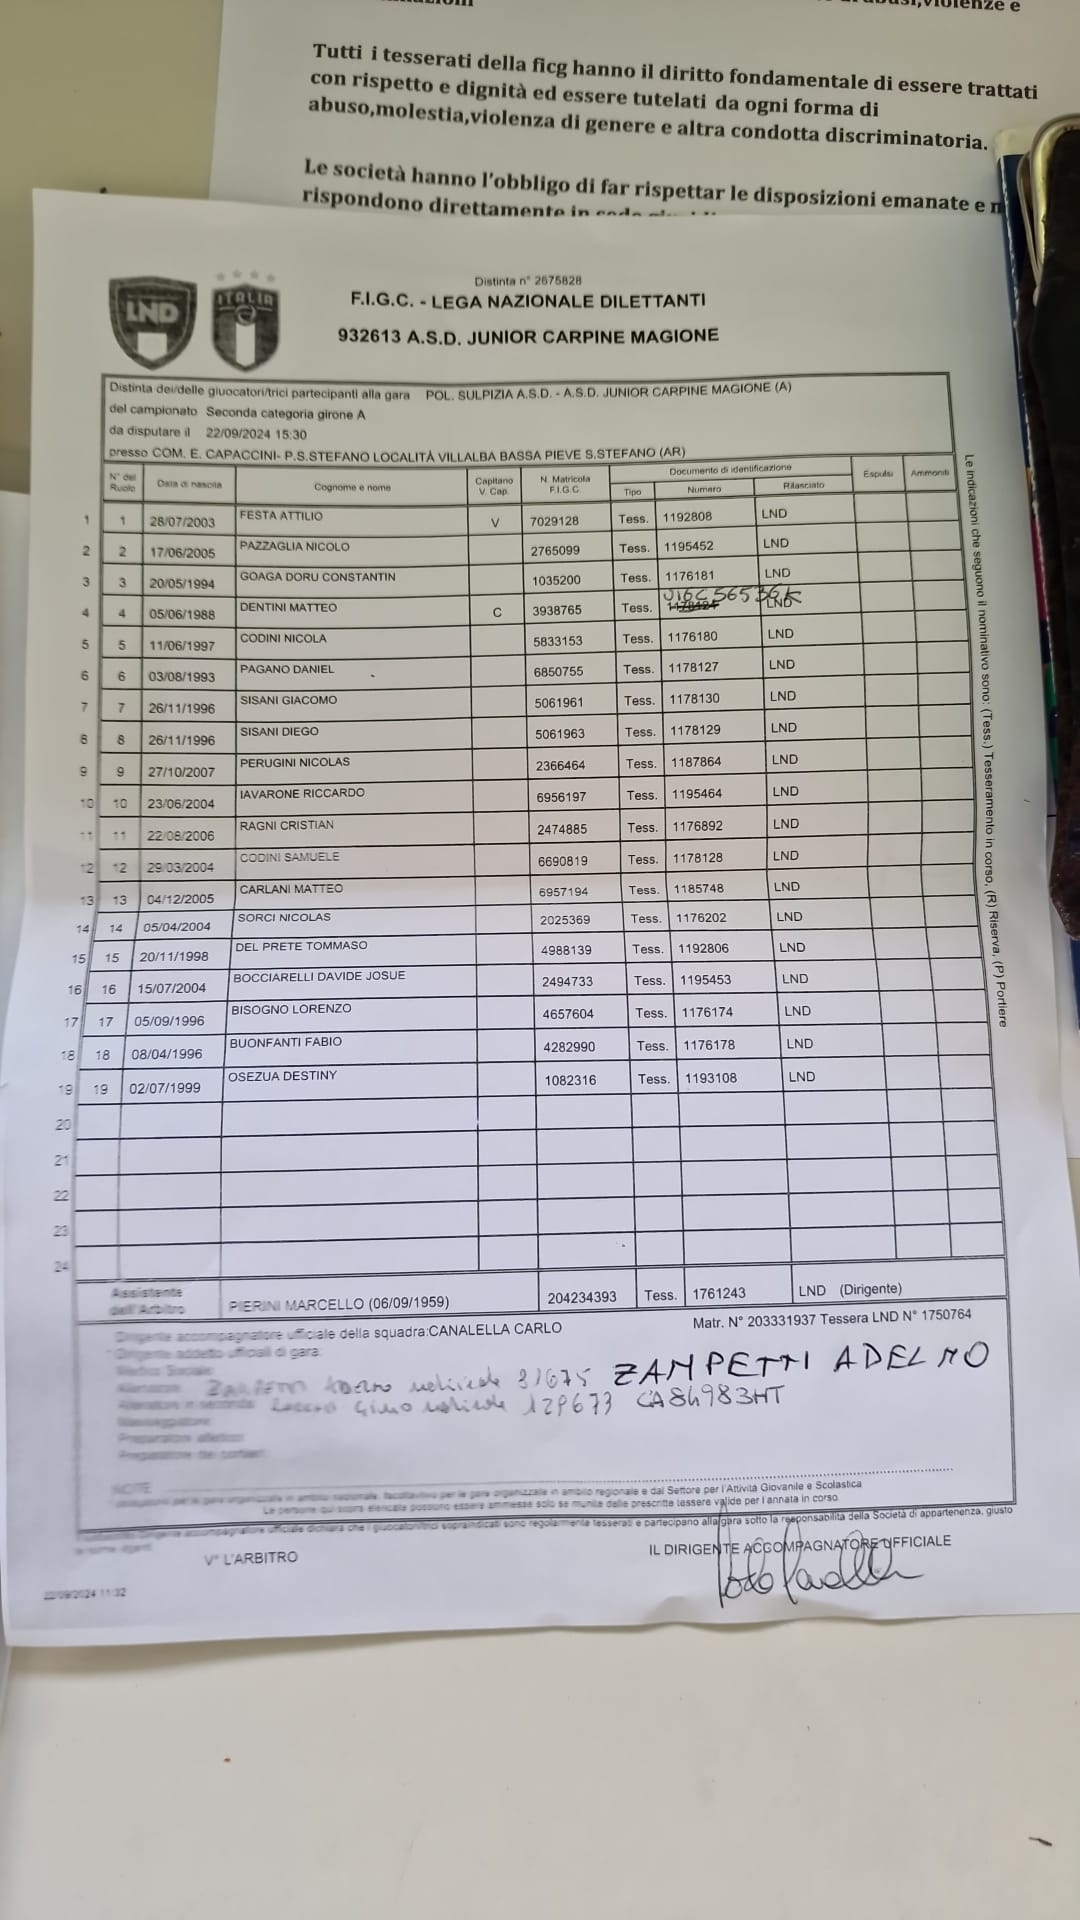 Tutti i tesserati della ficg hanno il diritto fondamentale di essere trattati
con rispetto e dignità ed essere tutelati da ogni forma di
abuso,molestia,violenza di genere e altra condotta discriminatoria.
Le società hanno l'obbligo di far rispettar le disposizioni emanate e
rispondono direttamente in
LND
ITALIA
Distinta n° 2675828
F.I.G.C. - LEGA NAZIONALE DILETTANTI
932613 A.S.D. JUNIOR CARPINE MAGIONE
Distinta dei/delle giuocatori/trici partecipanti alla gara POL. SULPIZIA A.S.D. - A.S.D. JUNIOR CARPINE MAGIONE (A)
del campionato Seconda categoria girone A
da disputare il 22/09/2024 15:30
presso COM. E. CAPACCINI- P.S.STEFANO LOCALITÀ VILLALBA BASSA PIEVE S.STEFANO (AR)
N° del Ruolo Data di nascita Cognome e nome Capitano V. Cap. N. Matricola F.I.G.C. Documento di identificazione Espulsi Ammoniti
Tipo Numero Rilasciato
1 1 28/07/2003 FESTA ATTILIO V 7029128 Tess. 1192808 LND
2 2 17/06/2005 PAZZAGLIA NICOLO 2765099 Tess. 1195452 LND
3 3 20/05/1994 GOAGA DORU CONSTANTIN 1035200 Tess. 1176181 LND
4 4 05/06/1988 DENTINI MATTEO C 3938765 Tess. LND
5 5 11/06/1997 CODINI NICOLA 5833153 Tess. 1176180 LND
6 6 03/08/1993 PAGANO DANIEL 6850755 Tess. 1178127 LND
7 7 26/11/1996 SISANI GIACOMO 5061961 Tess. 1178130 LND
8 8 26/11/1996 SISANI DIEGO 5061963 Tess. 1178129 LND
9 9 27/10/2007 PERUGINI NICOLAS 2366464 Tess. 1187864 LND
10 10 23/06/2004 IAVARONE RICCARDO 6956197 Tess. 1195464 LND
11 11 22/08/2006 RAGNI CRISTIAN 2474885 Tess. 1176892 LND
12 12 29/03/2004 CODINI SAMUELE 6690819 Tess. 1178128 LND
13 13 04/12/2005 CARLANI MATTEO 6957194 Tess. 1185748 LND
14 14 05/04/2004 SORCI NICOLAS 2025369 Tess. 1176202 LND
15 15 20/11/1998 DEL PRETE TOMMASO 4988139 Tess. 1192806 LND
16 16 15/07/2004 BOCCIARELLI DAVIDE JOSUE 2494733 Tess. 1195453 LND
17 17 05/09/1996 BISOGNO LORENZO 4657604 Tess. 1176174 LND
18 18 08/04/1996 BUONFANTI FABIO 4282990 Tess. 1176178 LND
19 19 02/07/1999 OSEZUA DESTINY 1082316 Tess. 1193108 LND
20
21
22
23
24
Le indicazioni che seguono il nominativo sono: (Tess.) Tesseramento in corso, (R) Riserva, (P) Portiere
Assistente dell'Arbitro PIERINI MARCELLO (06/09/1959) 204234393 Tess. 1761243 LND (Dirigente)
Dirigente accompagnatore ufficiale della squadra:CANALELLA CARLO Matr. N° 203331937 Tessera LND N° 1750764
Dirigente addetto ufficiali di gara:
Medico Sociale:
Allenatore: 31675 ZAMPETTI ADELMO
Allenatore in seconda: 129673 CA84983HT
Massaggiatore:
Preparatore atletico:
Preparatore dei portieri:
NOTE
Le persone qui sopra elencate possono essere ammesse solo se munite delle prescritte tessere valide per l'annata in corso
V° L'ARBITRO
IL DIRIGENTE ACCOMPAGNATORE UFFICIALE
22/09/2024 11:32